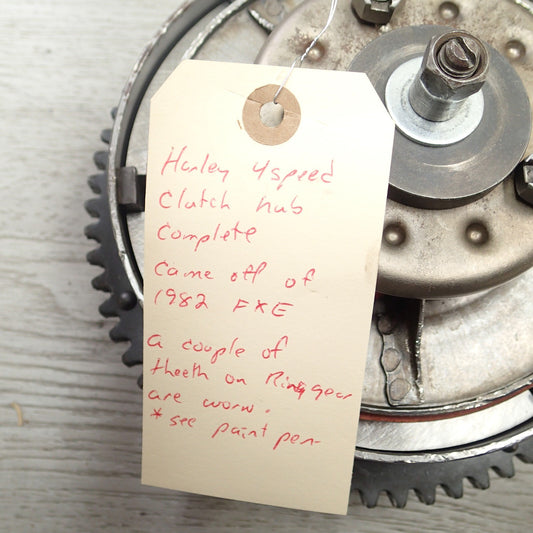 Harley 4speed
Clutch hub
Complete
Came off of
1982 FXE
a couple of
theeth on Ring gear
are worn.
* see paint pen-